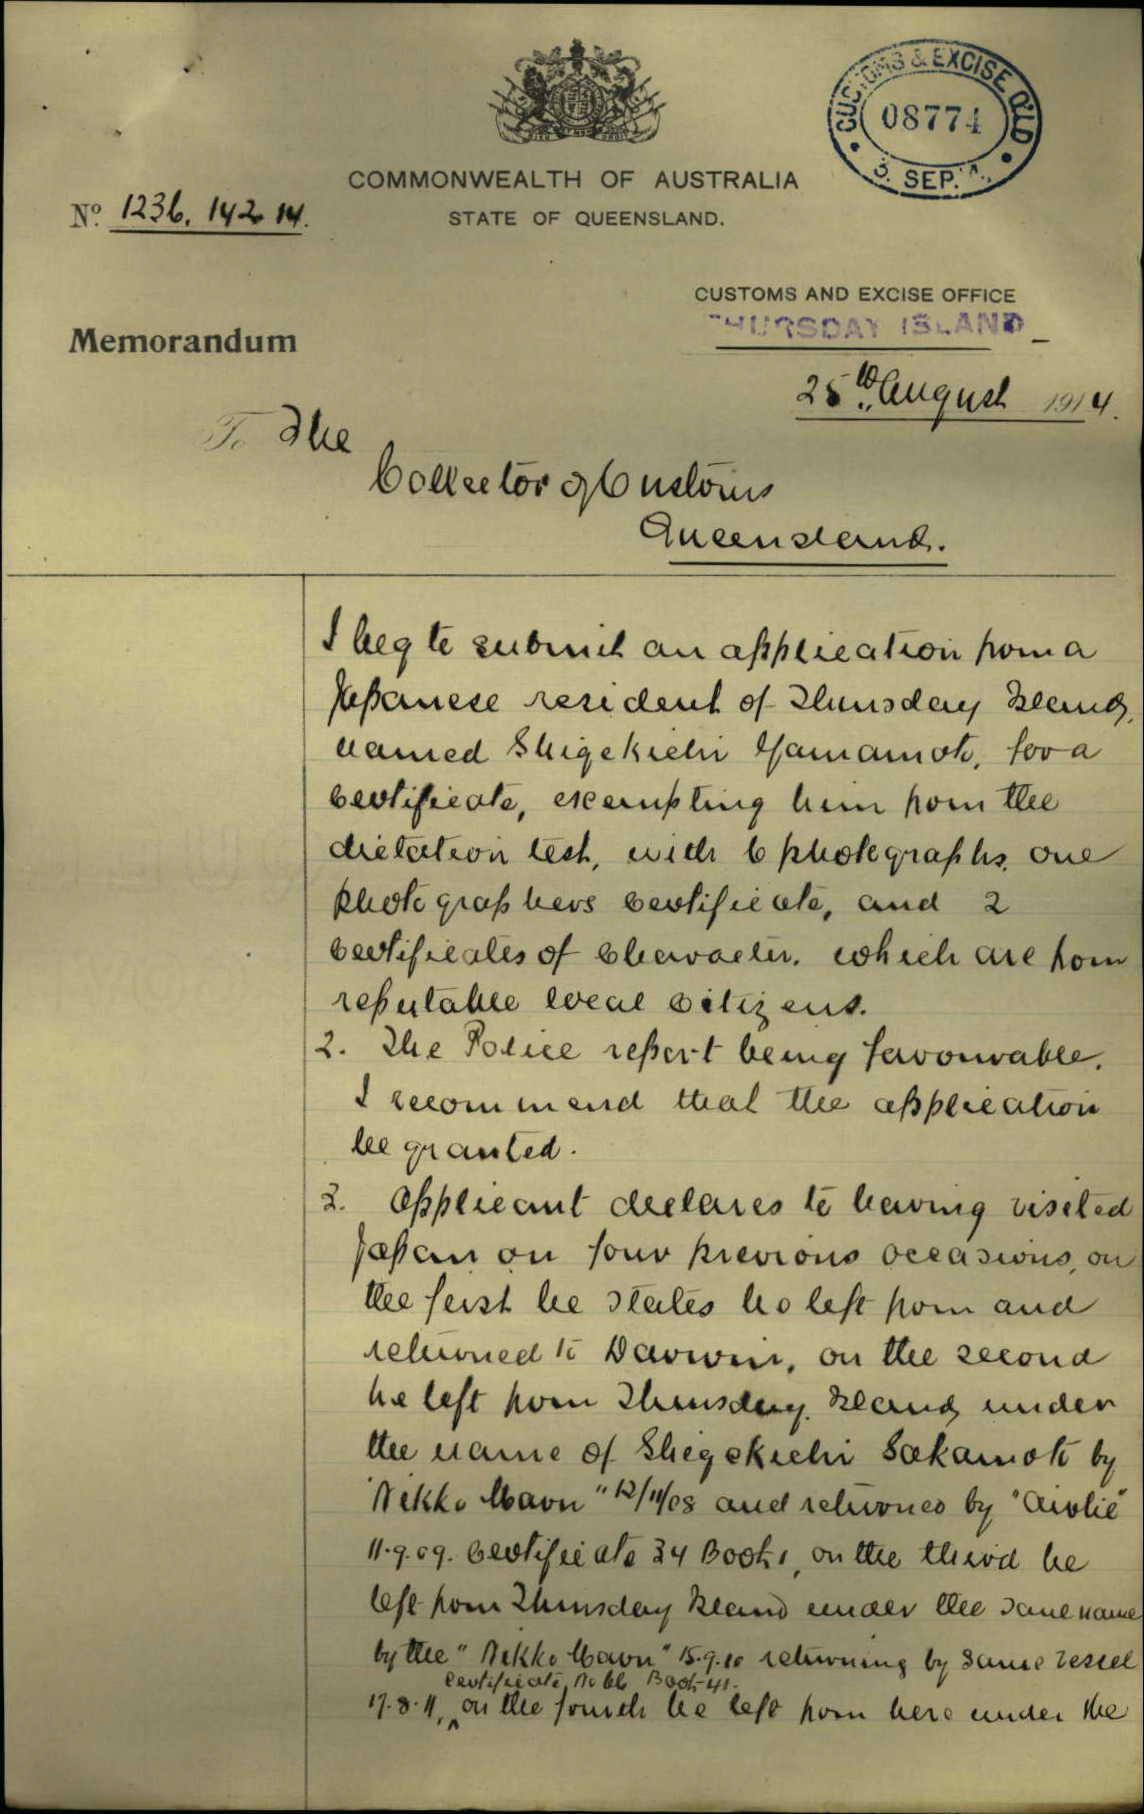 CUSTOMS & EXCISE Q'LD
08774
3. SEP.
COMMONWEALTH OF AUSTRALIA
STATE OF QUEENSLAND.
No. 1236. 142 14.
CUSTOMS AND EXCISE OFFICE
THURSDAY ISLAND
Memorandum
25th August 1914.
To The
Collector of Customs
Queensland.
I beg to submit an application from a
Japanese resident of Thursday Island,
named Shigekichi Yamamoto, for a
Certificate, exempting him from the
dictation test, with 6 photographs, one
photographers certificate, and 2
Certificates of Character, which are from
reputable local citizens.
2. The Police report being favourable,
I recommend that the application
be granted.
3. Applicant declares to having visited
Japan on four previous occasions, on
the first he states he left from and
returned to Darwin, on the second
he left from Thursday Island under
the name of Shigekichi Sakamoto by
"Nikko Maru" 12/11/08 and returned by "Airlie"
11.9.09. Certificate 34 Book 1, on the third he
left from Thursday Island under the same name
by the "Nikko Maru" 15.9.10 returning by same vessel
Certificate No 66 Book 41.
17.8.11, on the fourth he left from here under the